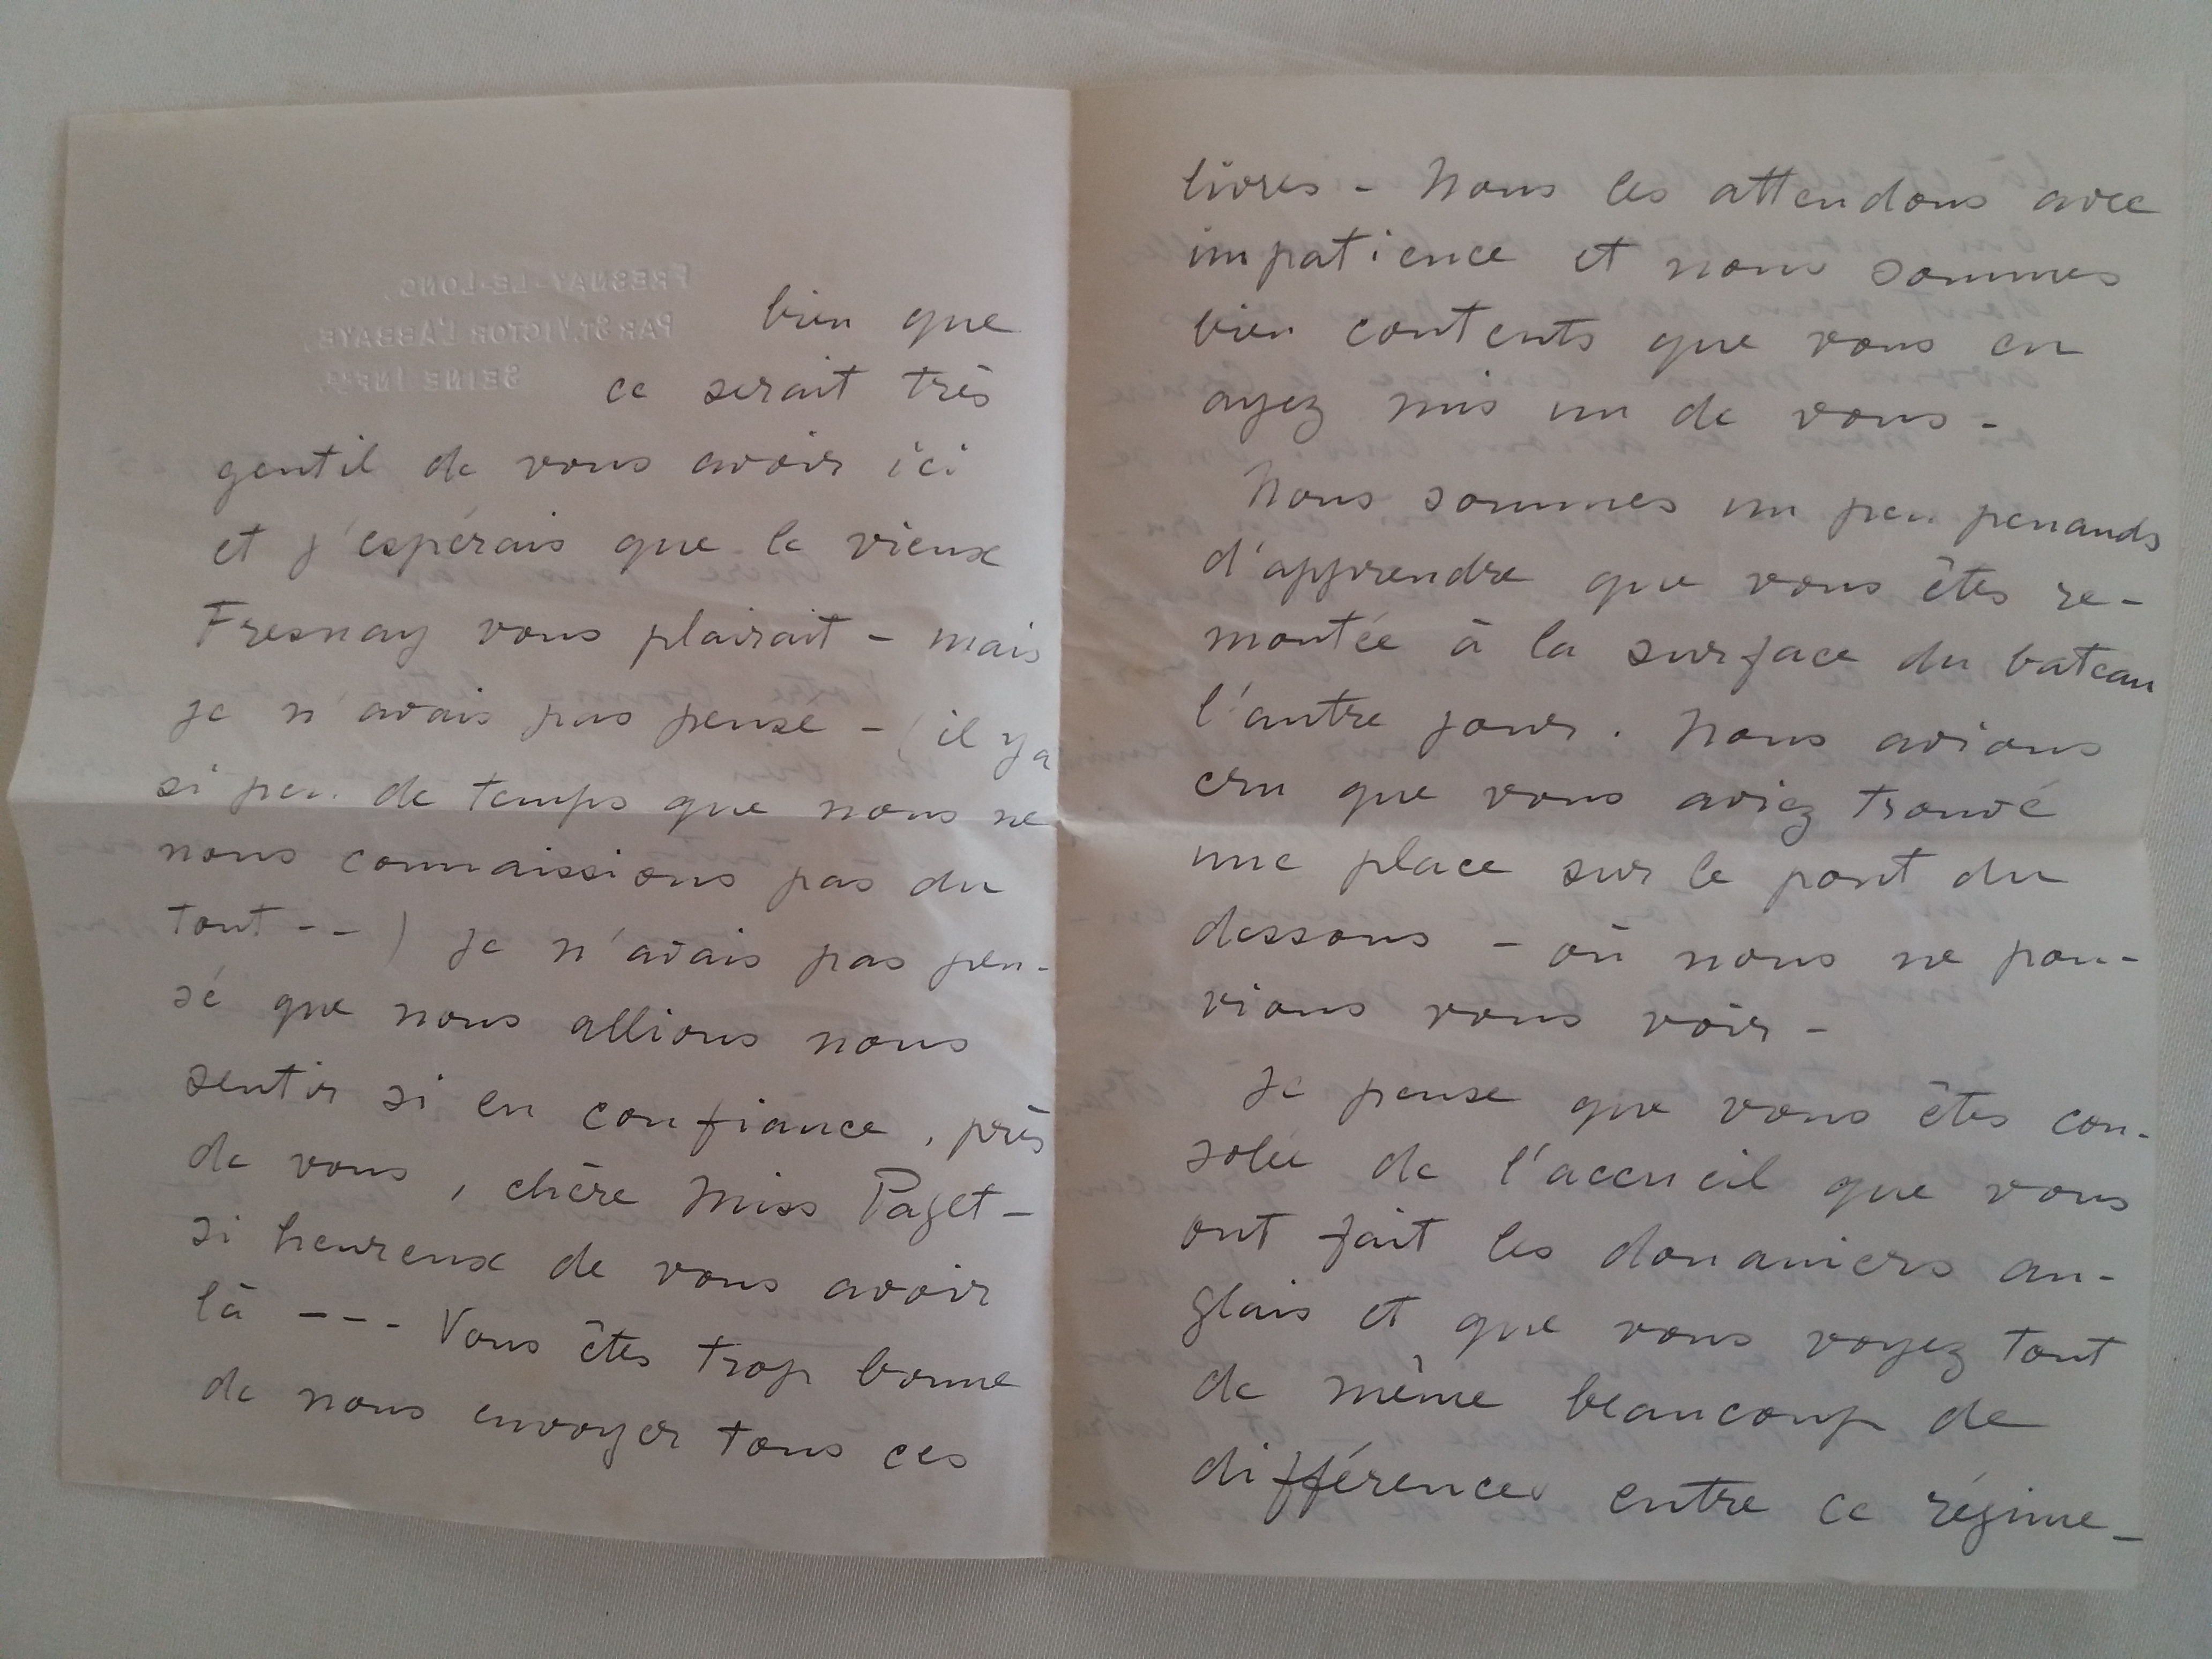 FRESNAY-LE-LONG,
PAR ST. VICTOR L'ABBAYE,
SEINE INFRE.
bien que
ce serait très
gentil de vous avoir ici
et j'espérais que le vieux
Fresnay vous plairait - mais
je n'avais pas pense - (il y a
si peu de temps que nous ne
nous connaissions pas du
tout -- ) je n'avais pas pen-
sé que nous allions nous
sentir si en confiance, près
de vous, chère Miss Paget -
si heureux de vous avoir
là --- Vous êtes trop bonne
de nous envoyer tous ces
livres - Nous les attendons avec
impatience et nous sommes
bien contents que vous en
ayez mis un de vous -
Nous sommes un peu penauds
d'apprendre que vous êtes re-
montée à la surface du bateau
l'autre jour. Nous avions
cru que vous aviez trouvé
une place sur le pont du
dessous - où nous ne pou-
vions vous voir -
Je pense que vous êtes con-
solée de l'accueil que vous
ont fait les douaniers an-
glais et que vous voyez tout
de même beaucoup de
différences entre ce régime -